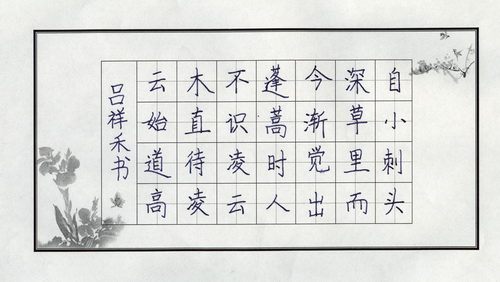 自小刺头
深草里而
今渐觉出
蓬蒿时人
不识凌云
木直待凌
云始道高
吕祥禾书